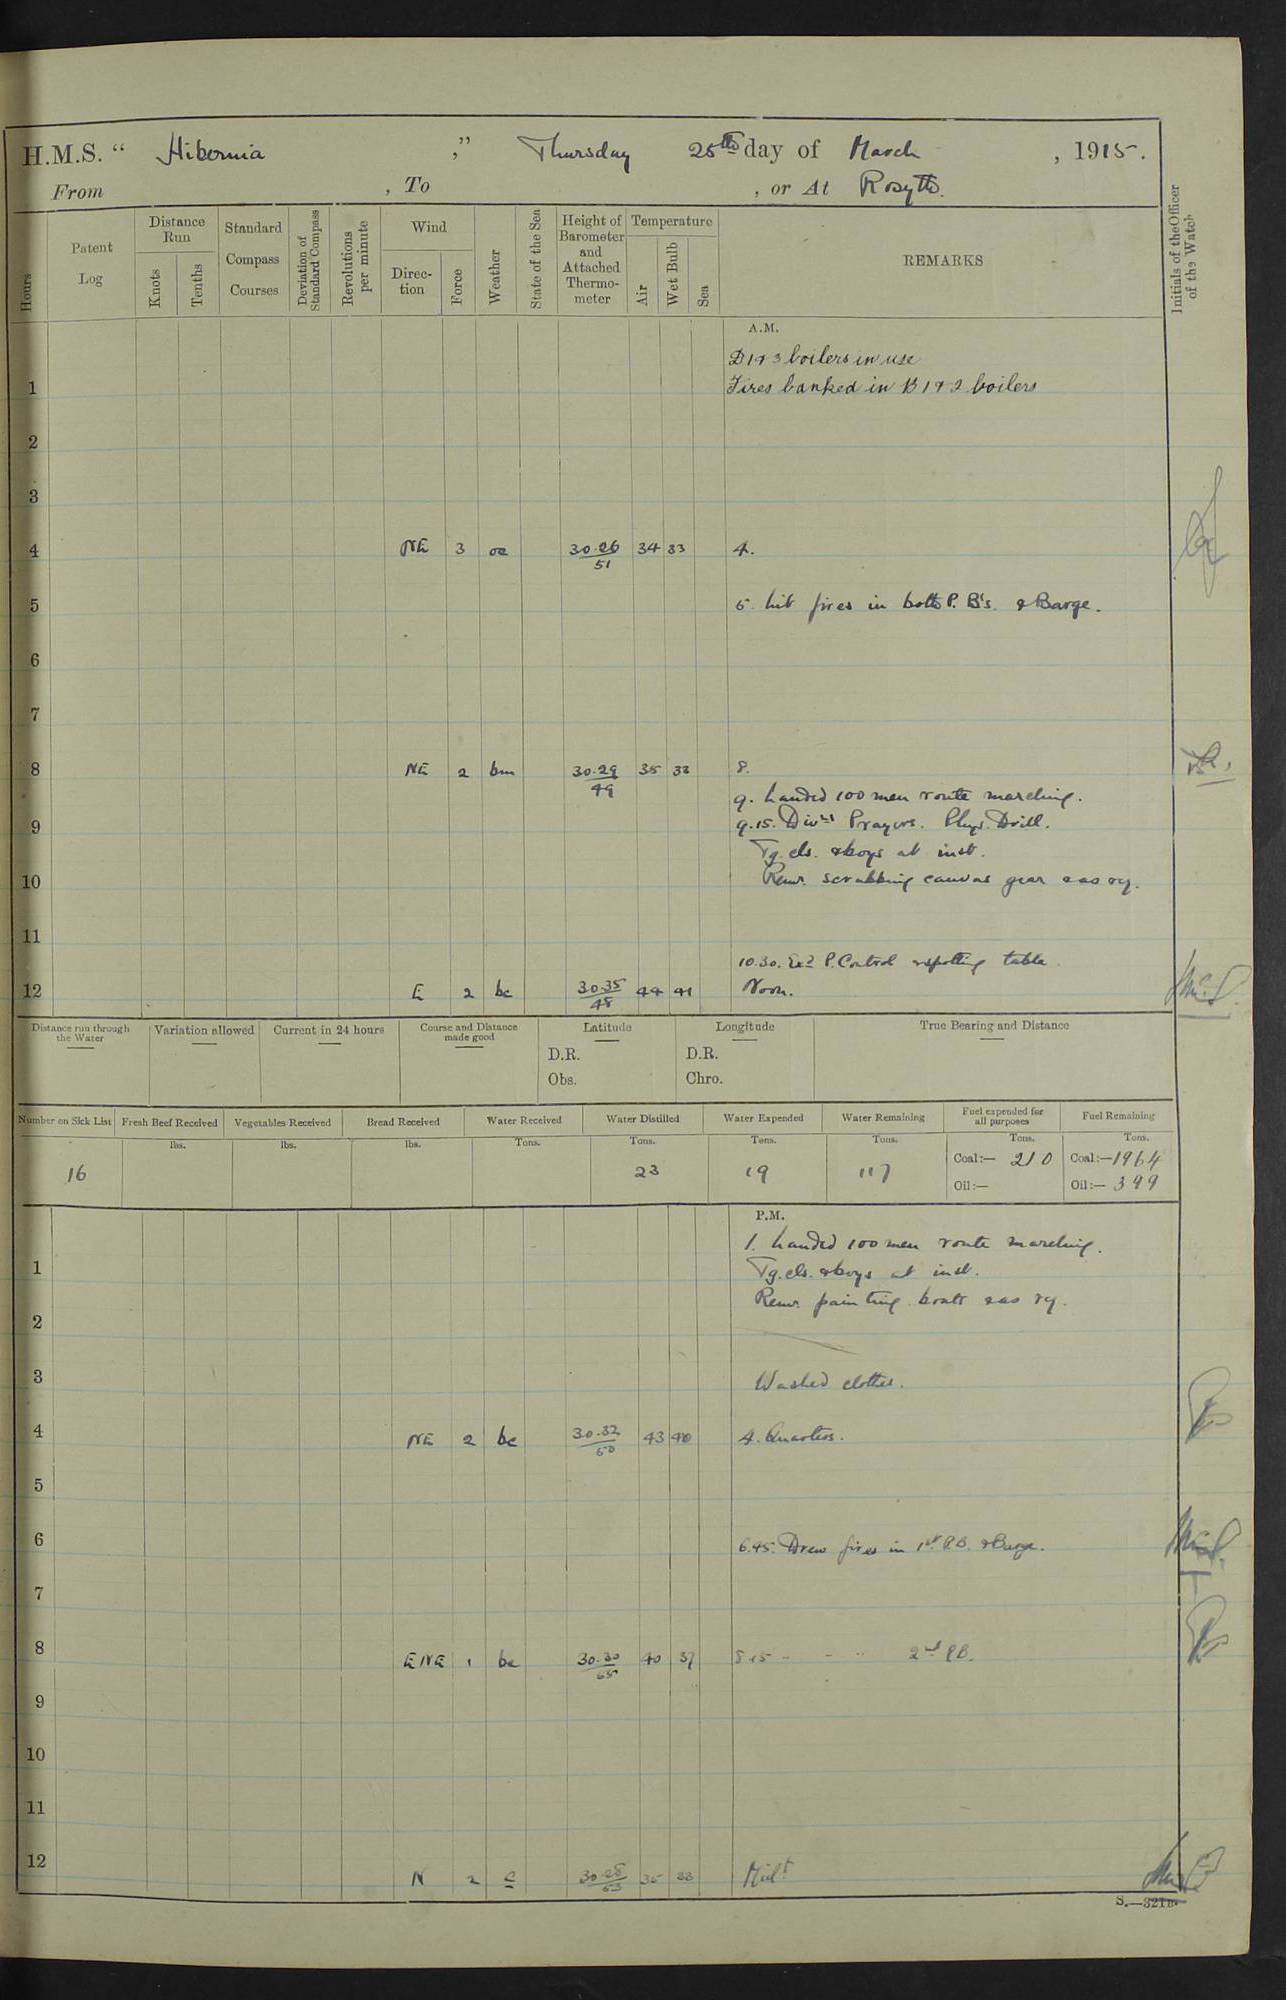 H.M.S. “ Hibernia ,” Thursday 25th day of March , 1915.
From , To , or At Rosyth.
Hours
Patent Log
Distance Run
Knots
Tenths
Standard Compass Courses
Deviation of Standard Compass
Revolutions per minute
Wind
Direction
Force
Weather
State of the Sea
Height of Barometer and Attached Thermometer
Temperature
Air
Wet Bulb
Sea
REMARKS
Initials of the Officer of the Watch
A.M.
D 1 & 3 boilers in use
1 Fires banked in B 1 & 2 boilers
2
3
4 NE 3 oc 30.26 51 34 33 4.
5 5. Lit fires in both P. B's. & Barge.
6
7
8 NE 2 bm 30.29 49 35 33 8.
9. Landed 100 men route marching.
9 9.15. Divns Prayers. Phys. Drill.
Tg. cls. & boys at inst.
10 Remr. scrubbing canvas gear & as rq.
11
10.30. Exd P. Control & spotting table
12 E 2 bc 30.35 48 44 41 Noon.
Distance run through the Water
Variation allowed
Current in 24 hours
Course and Distance made good
Latitude
D.R.
Obs.
Longitude
D.R.
Chro.
True Bearing and Distance
Number on Sick List
Fresh Beef Received
Vegetables Received
Bread Received
Water Received
Water Distilled
Water Expended
Water Remaining
Fuel expended for all purposes
Fuel Remaining
lbs. lbs. lbs. Tons. Tons. Tons. Tons. Tons. Tons.
16 23 19 117 Coal:— 210 Coal:— 1964
Oil:— Oil:— 399
P.M.
1. Landed 100 men route marching.
1 Tg. cls. & boys at inst.
Remr painting boats & as rq.
2
3 Washed clothes.
4 NE 2 bc 30.32 50 43 40 4. Quarters.
5
6 6.45. Drew fires in 1st P.B. & Barge.
7
8 ENE 1 bc 30.30 55 40 37 8.15 - - - 2nd P.B.
9
10
11
12 N 2 c 30.28 53 35 33 Midt
S.—321B.